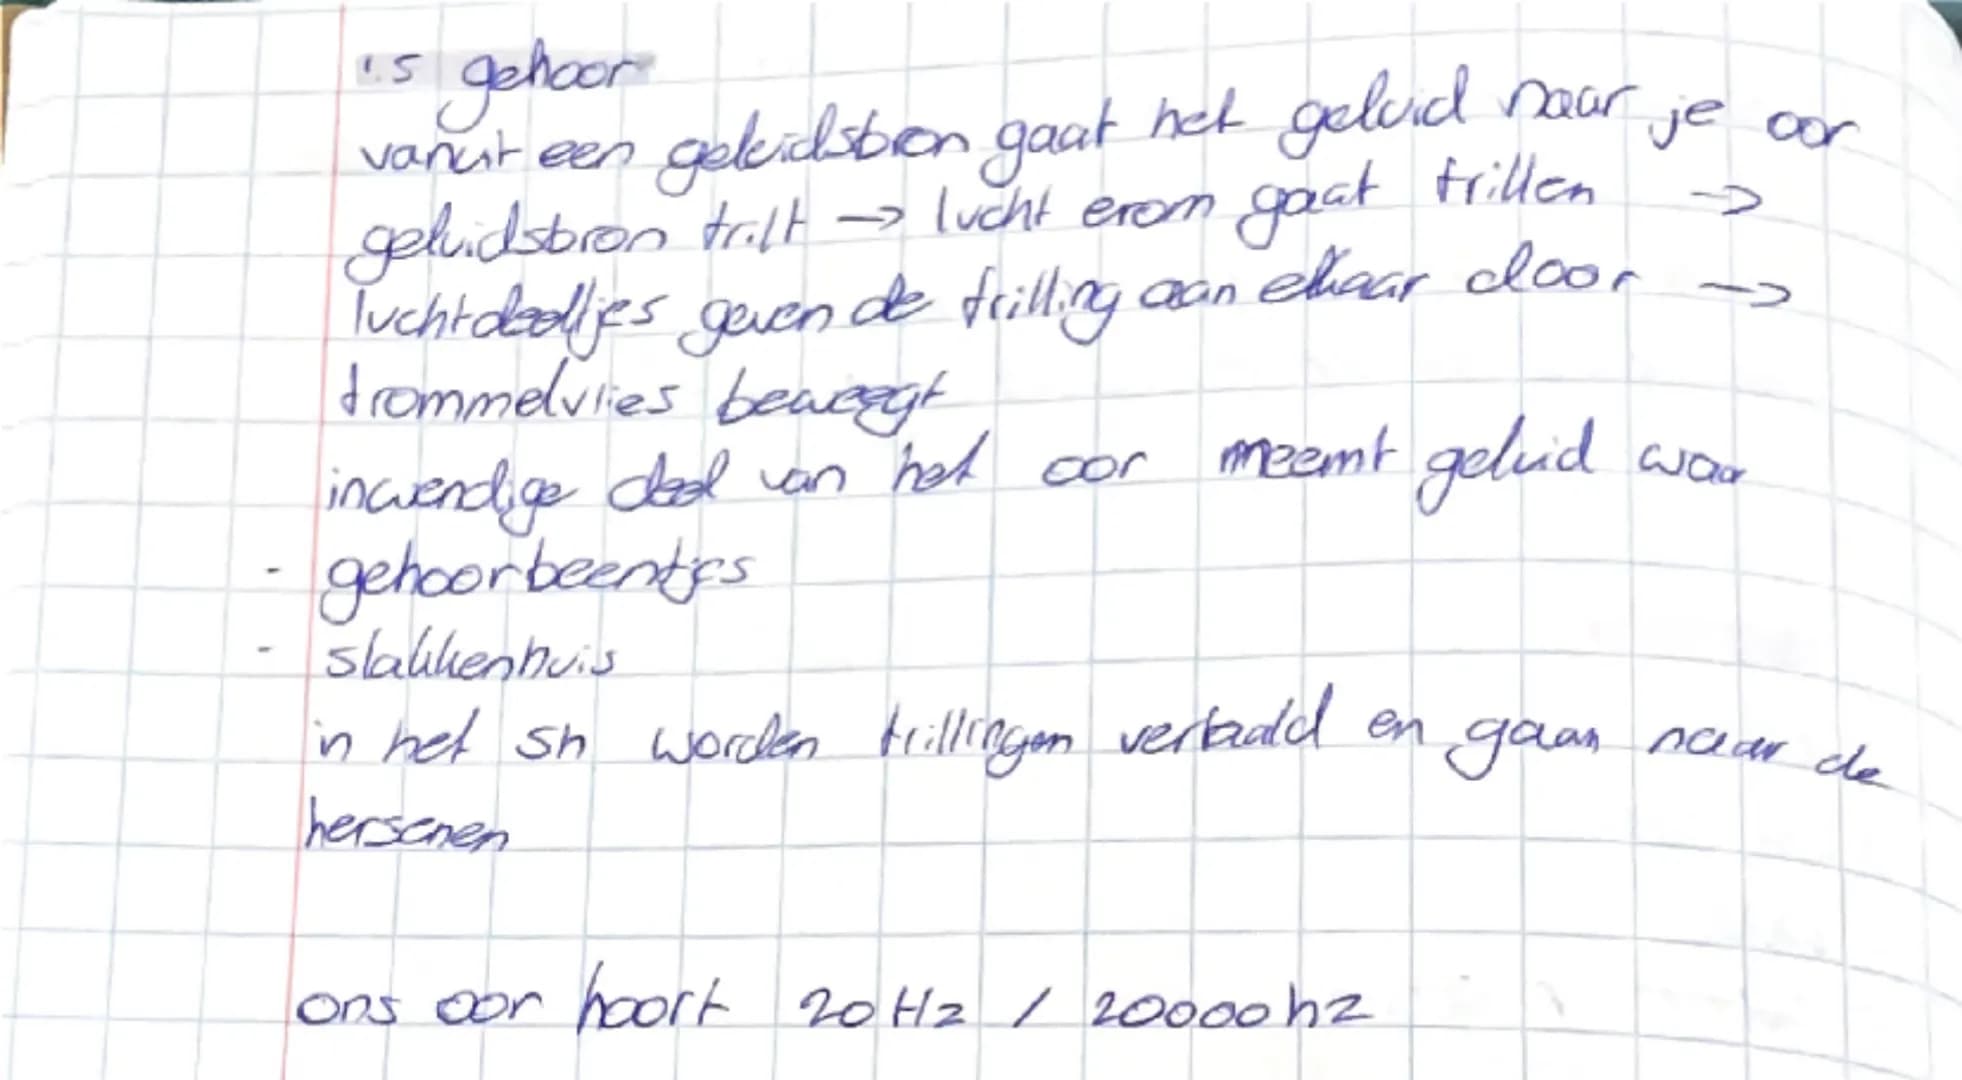 1.5 gehoor
vanuit een geluidsbron gaat het geluid naar je oor
geluidsbron trilt -> lucht erom gaat trillen ->
luchtdeeltjes geven de trilling aan elkaar door ->
trommelvlies beweegt
inwendige deel van het oor neemt geluid waar
- gehoorbeentjes
- slakkenhuis
in het sh worden trillingen vertaald en gaan naar de
hersenen
ons oor hoort 20 Hz / 20000 hz